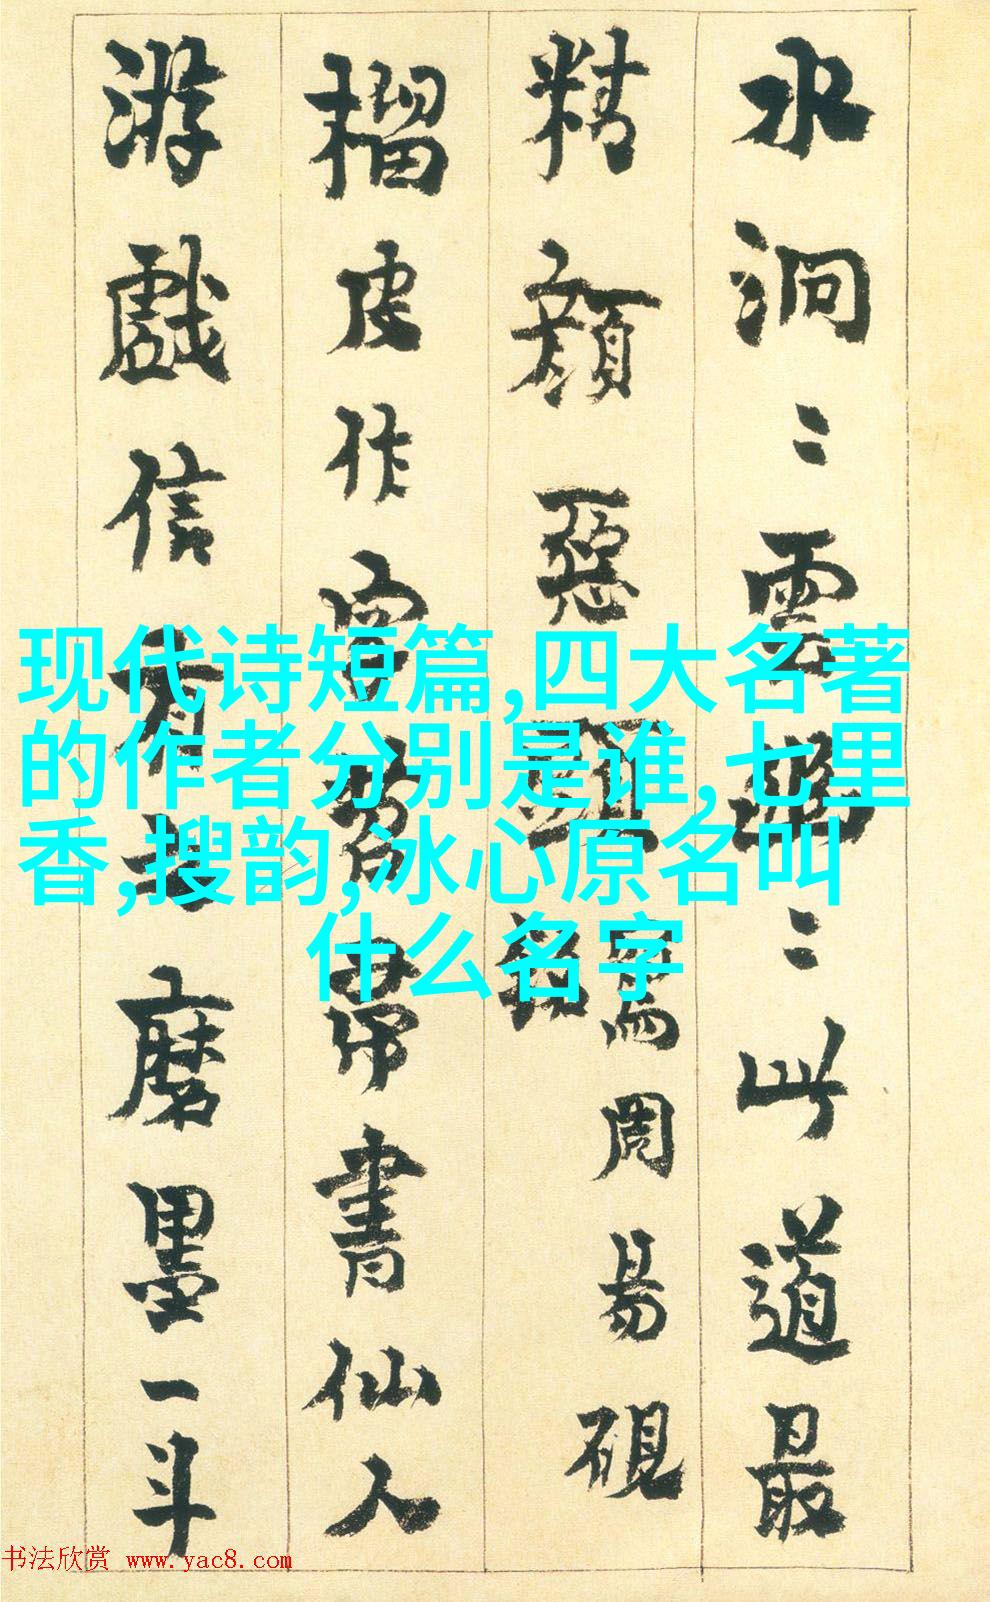 水洞〻雲〻此道最
精顏惡寫周易硯
榴皮作字苕帚書仙人
游戲信有之磨墨一斗
现代诗短篇,四大名著
的作者分别是谁,七里
香,搜韵,冰心原名叫
什么名字
书法欣赏 www.yac8.com